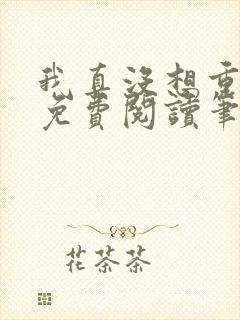 我真沒想重
免費閱讀筆
花茶茶